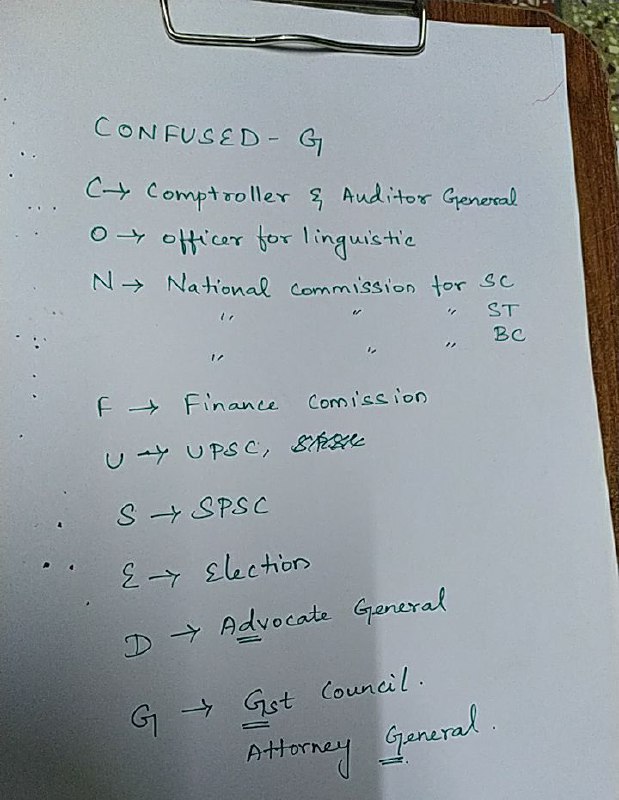 CONFUSED - G
C → Comptroller & Auditor General
O → officer for linguistic
N → National commission for SC
" " " ST
" " " BC
F → Finance Comission
U → UPSC,
S → SPSC
E → Election
D → Advocate General
G → Gst Council.
Attorney General.